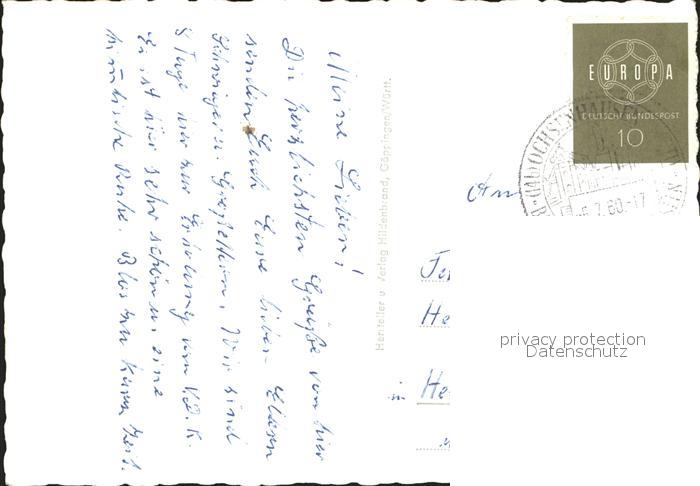 Meine Lieben!
Die herzlichsten Grüße von hier
senden Euch Eure lieben Eltern
Schwieger u. Großeltern. Wir sind
8 Tage hier zur Erholung vom V.d.K.
Es ist hier sehr schön u. eine
himmlische Ruhe. Blos zu kurze Zeit.
Hersteller u. Verlag Hildenbrand, Göppingen/Württ.
EUROPA
DEUTSCHE BUNDESPOST
10
OCHSENHAUSEN
7.60-17
An
in
privacy protection
Datenschutz